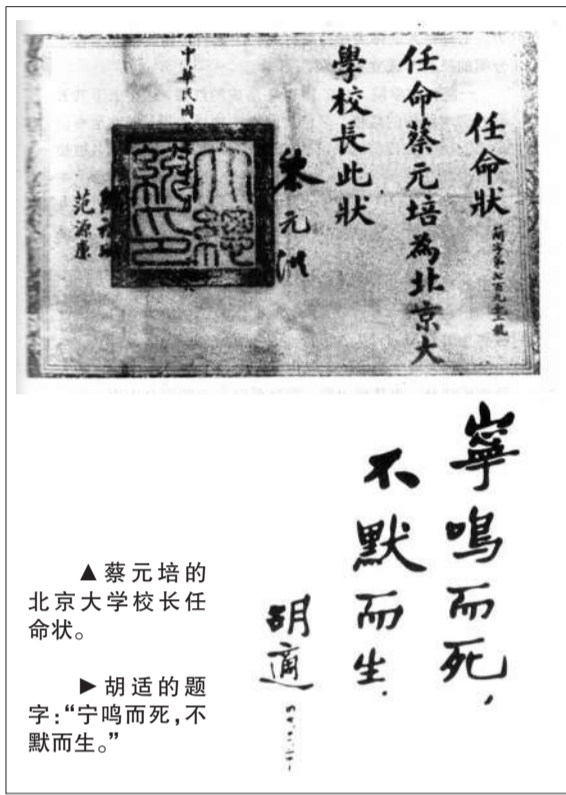 任命狀
任命蔡元培為北京大
學校長此狀
黎元洪
大總
統印
中華民國
范源廉
寧鳴而死，
不默而生.
胡適
▲蔡元培的
北京大学校长任
命状。
▶胡适的题
字：“宁鸣而死，不
默而生。”